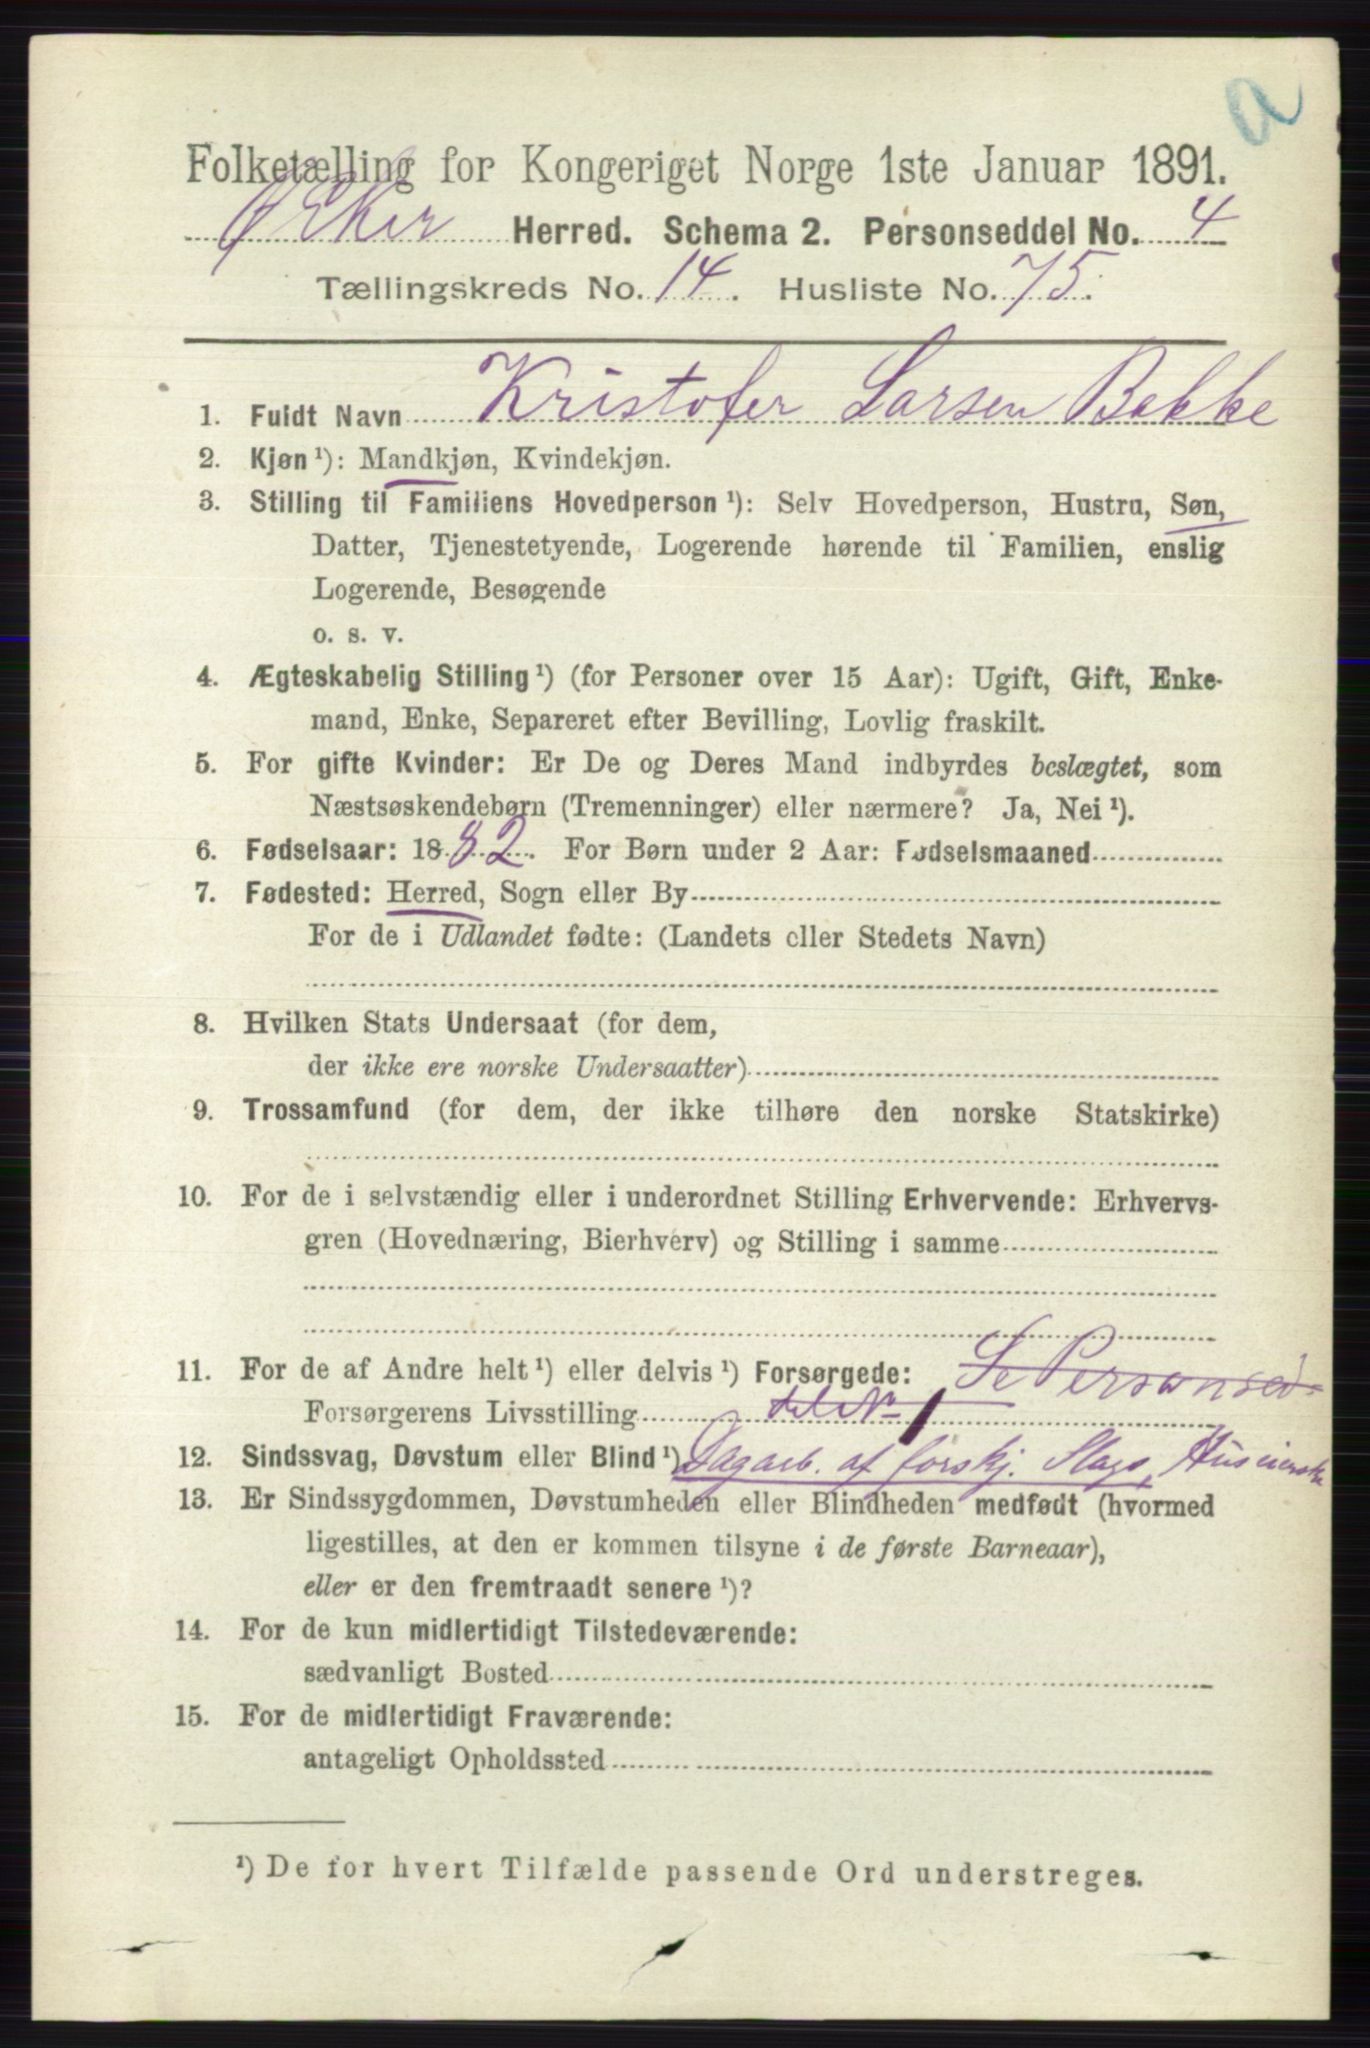 a
Folketælling for Kongeriget Norge 1ste Januar 1891.
Ø Eker Herred. Schema 2. Personseddel No. 4
Tællingskreds No. 14. Husliste No. 75.
1. Fuldt Navn Kristofer Larsen Bakke
2. Kjøn¹): Mandkjøn, Kvindekjøn.
3. Stilling til Familiens Hovedperson¹): Selv Hovedperson, Hustru, Søn,
Datter, Tjenestetyende, Logerende hørende til Familien, enslig
Logerende, Besøgende
o. s. v.
4. Ægteskabelig Stilling¹) (for Personer over 15 Aar): Ugift, Gift, Enke-
mand, Enke, Separeret efter Bevilling, Lovlig fraskilt.
5. For gifte Kvinder: Er De og Deres Mand indbyrdes beslægtet, som
Næstsøskendebørn (Tremenninger) eller nærmere? Ja, Nei¹).
6. Fødselsaar: 1882. For Børn under 2 Aar: Fødselsmaaned
7. Fødested: Herred, Sogn eller By
For de i Udlandet fødte: (Landets eller Stedets Navn)
8. Hvilken Stats Undersaat (for dem,
der ikke ere norske Undersaatter)
9. Trossamfund (for dem, der ikke tilhøre den norske Statskirke)
10. For de i selvstændig eller i underordnet Stilling Erhvervende: Erhvervs-
gren (Hovednæring, Bierhverv) og Stilling i samme
11. For de af Andre helt¹) eller delvis¹) Forsørgede: Se Personsed-
Forsørgerens Livsstilling del No 1
12. Sindssvag, Døvstum eller Blind¹) Dagarb. af forskj. Slags,
13. Er Sindssygdommen, Døvstumheden eller Blindheden medfødt (hvormed
ligestilles, at den er kommen tilsyne i de første Barneaar),
eller er den fremtraadt senere¹)?
14. For de kun midlertidigt Tilstedeværende:
sædvanligt Bosted
15. For de midlertidigt Fraværende:
antageligt Opholdssted
¹) De for hvert Tilfælde passende Ord understreges.